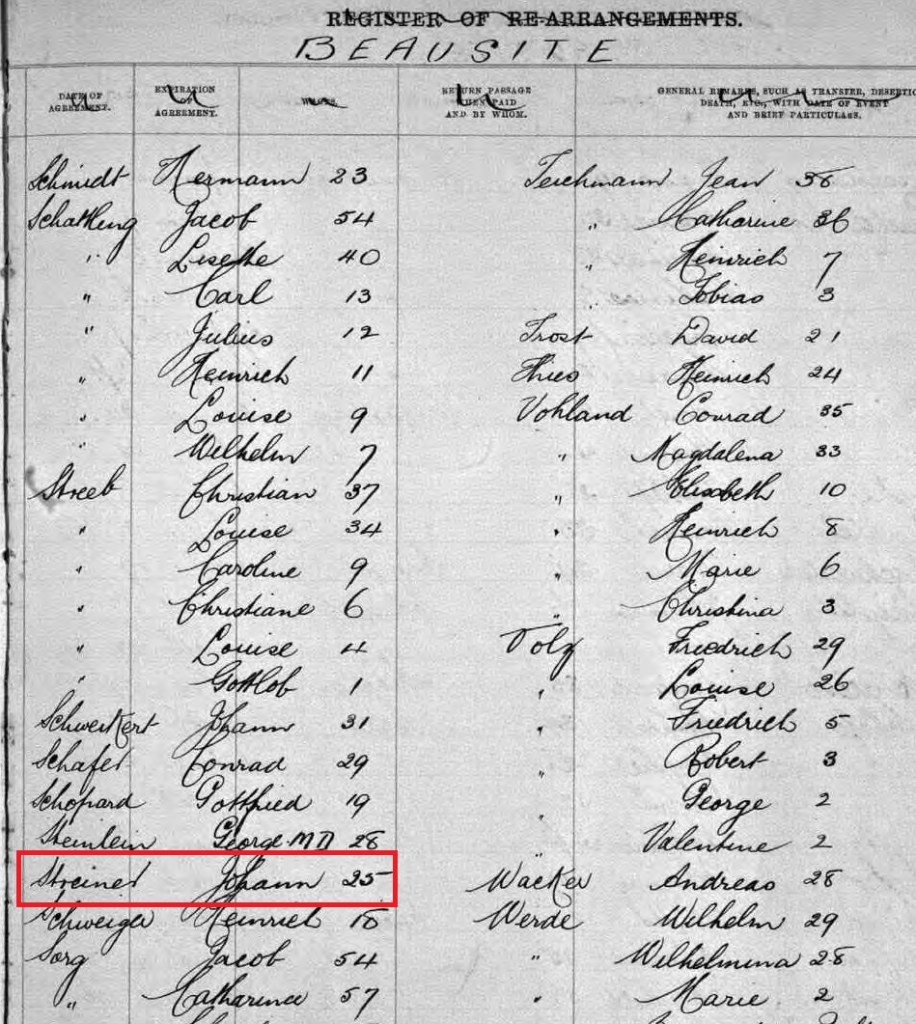 REGISTER OF RE-ARRANGEMENTS.
BEAUSITE
DATE OF AGREEMENT.
EXPIRATION OF AGREEMENT.
RETURN PASSAGE WHEN PAID AND BY WHOM.
GENERAL REMARKS, SUCH AS TRANSFER, DESERTIO
DEATH, ETC., WITH DATE OF EVENT
AND BRIEF PARTICULARS.
Schmidt Hermann 23
Schattling Jacob 54
" Lisette 40
" Carl 13
" Julius 12
" Heinrich 11
" Louise 9
" Wilhelm 7
Streeb Christian 37
" Louise 34
" Caroline 9
" Christiane 6
" Louise 4
" Gottlob 1
Schweikert Johann 31
Schafer Conrad 29
Schopard Gottfried 19
Steinlein George M D 28
Streiner Johann 25
Schweiger Heinrich 18
Sorg Jacob 54
" Catharina 57
Teichmann Jean 38
" Catharine 36
" Heinrich 7
Tobias 3
Trost David 21
Thies Heinrich 24
Vohland Conrad 35
" Magdalena 33
" Elisabeth 10
" Heinrich 8
" Marie 6
" Christina 3
Volz Friedrich 29
" Louise 26
" Friedrich 5
" Robert 3
George 2
" Valentine 2
Wacker Andreas 28
Werde Wilhelm 29
" Wilhelmina 28
" Marie 2